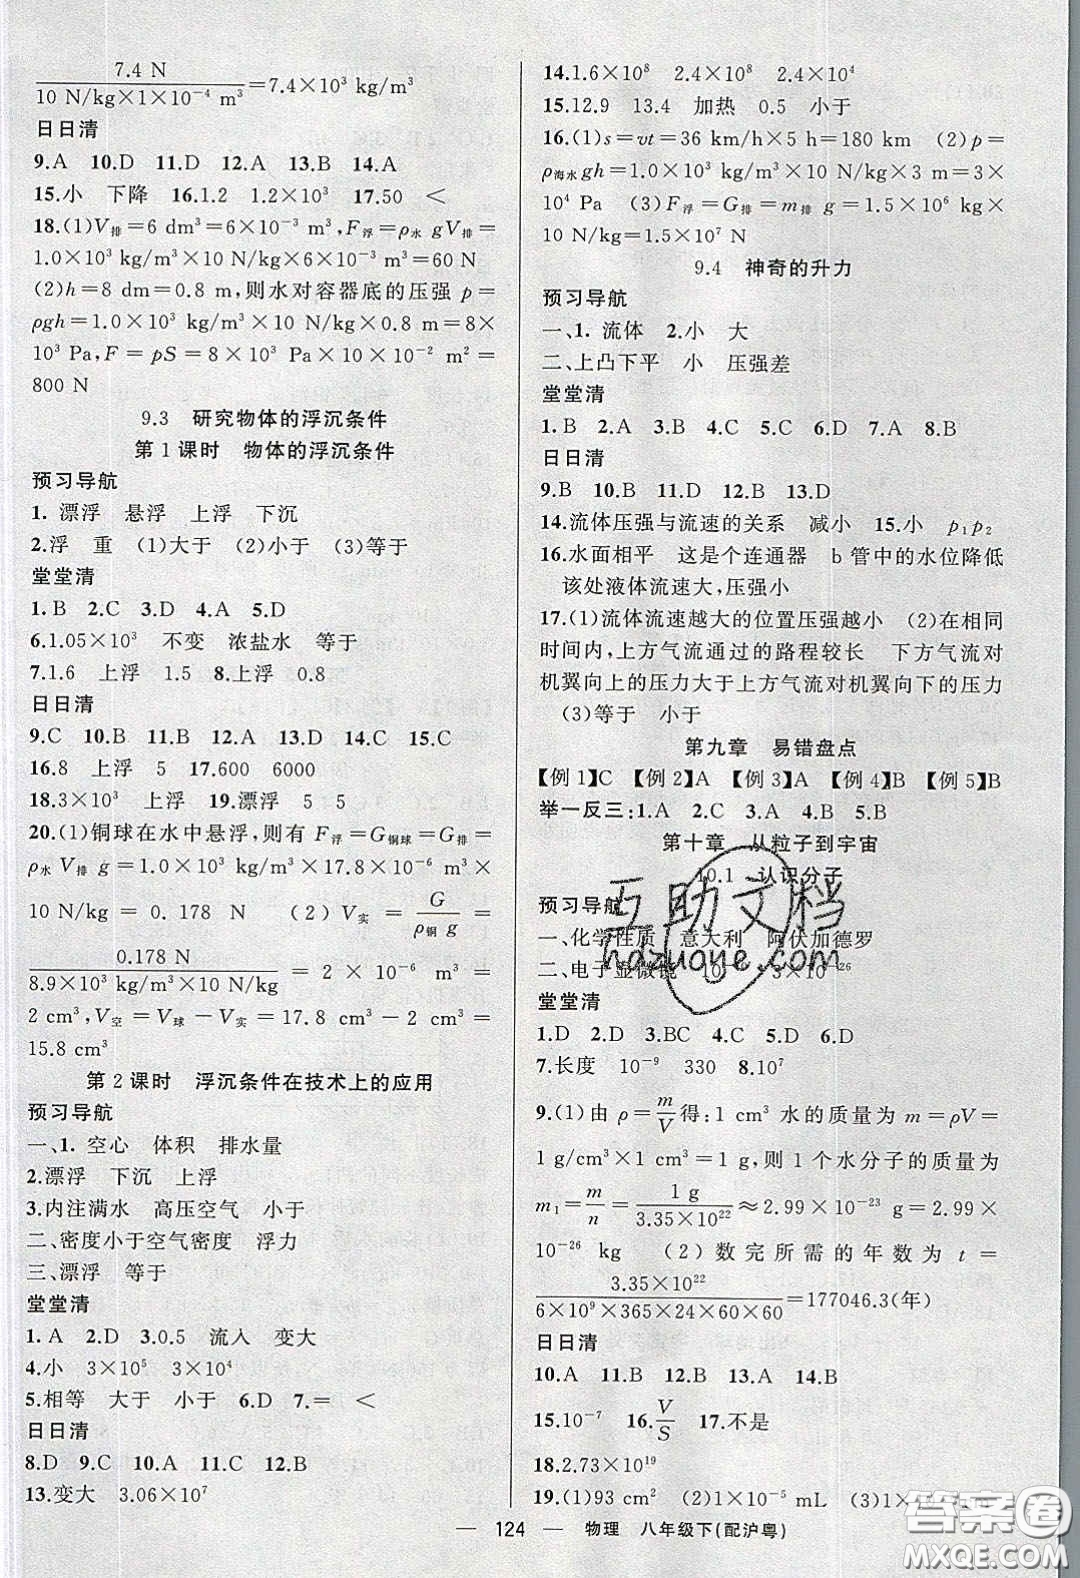 7.4 N/(10 N/kg×1×10⁻⁴ m³)=7.4×10³ kg/m³
日日清
9.A 10.D 11.D 12.A 13.B 14.A
15.小 下降 16.1.2 1.2×10³ 17.50 <
18.(1)V排=6 dm³=6×10⁻³ m³,F浮=ρ水 gV排=
1.0×10³ kg/m³×10 N/kg×6×10⁻³ m³=60 N
(2)h=8 dm=0.8 m,则水对容器底的压强 p=
ρgh=1.0×10³ kg/m³×10 N/kg×0.8 m=8×
10³ Pa,F=pS=8×10³ Pa×10×10⁻² m²=
800 N
9.3 研究物体的浮沉条件
第1课时 物体的浮沉条件
预习导航
1. 漂浮 悬浮 上浮 下沉
2.浮 重 (1)大于 (2)小于 (3)等于
堂堂清
1.B 2.C 3.D 4.A 5.D
6.1.05×10³ 不变 浓盐水 等于
7.1.6 上浮 1.5 8.上浮 0.8
日日清
9.C 10.B 11.B 12.A 13.D 14.C 15.C
16.8 上浮 5 17.600 6000
18.3×10³ 上浮 19.漂浮 5 5
20.(1)铜球在水中悬浮,则有 F浮=G铜球=G排=
ρ水 V排 g=1.0×10³ kg/m³×17.8×10⁻⁶ m³×
10 N/kg=0.178 N (2)V实=G/(ρ铜 g)=
0.178 N/(8.9×10³ kg/m³×10 N/kg)=2×10⁻⁶ m³=
2 cm³,V空=V球-V实=17.8 cm³-2 cm³=
15.8 cm³
第2课时 浮沉条件在技术上的应用
预习导航
一、1. 空心 体积 排水量
2.漂浮 下沉 上浮
3.内注满水 高压空气 小于
二、密度小于空气密度 浮力
三、漂浮 等于
堂堂清
1.A 2.D 3.0.5 流入 变大
4.小 3×10⁵ 3×10⁴
5.相等 大于 小于 6.D 7.= <
日日清
8.D 9.C 10.A 11.C 12.B
13.变大 3.06×10⁷
14.1.6×10⁸ 2.4×10⁸ 2.4×10⁴
15.12.9 13.4 加热 0.5 小于
16.(1)s=vt=36 km/h×5 h=180 km (2)p=
ρ海水gh=1.0×10³ kg/m³×10 N/kg×3 m=3×
10⁴ Pa (3)F浮=G排=m排 g=1.5×10⁶ kg×
10 N/kg=1.5×10⁷ N
9.4 神奇的升力
预习导航
一、1. 流体 2.小 大
二、上凸下平 小 压强差
堂堂清
1.B 2.A 3.C 4.B 5.C 6.D 7.A 8.B
日日清
9.B 10.B 11.D 12.B 13.D
14.流体压强与流速的关系 减小 15.小 p₁p₂
16.水面相平 这是个连通器 b 管中的水位降低
该处液体流速大,压强小
17.(1)流体流速越大的位置压强越小 (2)在相同
时间内,上方气流通过的路程较长 下方气流对
机翼向上的压力大于上方气流对机翼向下的压力
(3)等于 小于
第九章 易错盘点
【例1】C 【例2】A 【例3】A 【例4】B 【例5】B
举一反三:1.A 2.C 3.A 4.B 5.B
第十章 从粒子到宇宙
10.1 认识分子
预习导航
一、化学性质 意大利 阿伏加德罗
二、电子显微镜 3×10⁻²⁶
堂堂清
1.D 2.D 3.BC 4.D 5.D 6.D
7.长度 10⁻⁹ 330 8.10⁷
9.(1)由 ρ=m/V得:1 cm³ 水的质量为 m=ρV=
1 g/cm³×1 cm³=1 g,则 1 个水分子的质量为
m₁=m/n=1 g/(3.35×10²²)≈2.99×10⁻²³ g=2.99×
10⁻²⁶ kg (2)数完所需的年数为 t=
3.35×10²²/(6×10⁹×365×24×60×60)=177046.3(年)
日日清
10.A 11.B 12.A 13.A 14.B
15.10⁻⁷ 16.V/S 17.不是
18.2.73×10¹⁹
19.(1)93 cm² (2)1×10⁻⁵ mL (3)1×10
— 124 — 物理 八年级下(配沪粤)
互助文档
hdzuoye.com
答案圈
MXQE.COM